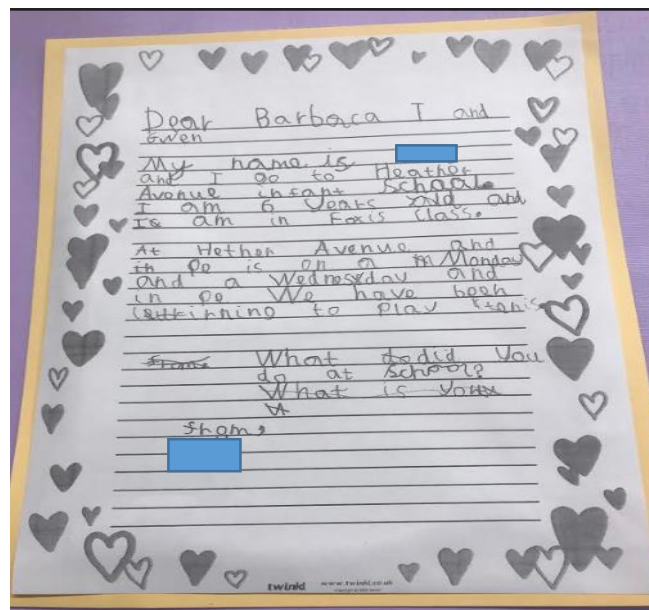 Dear Barbara I and
Gwen
My name is
and I go to Heather
Avenue infant School.
I am 6 years old and
I am in Foxis Class.
At Hether Avenue and
in Pe is on a Monday
and a Wednesday and
in pe We have been
to play
What do did you
do at school?
What is your
from,
twinkl www.twinkl.co.uk